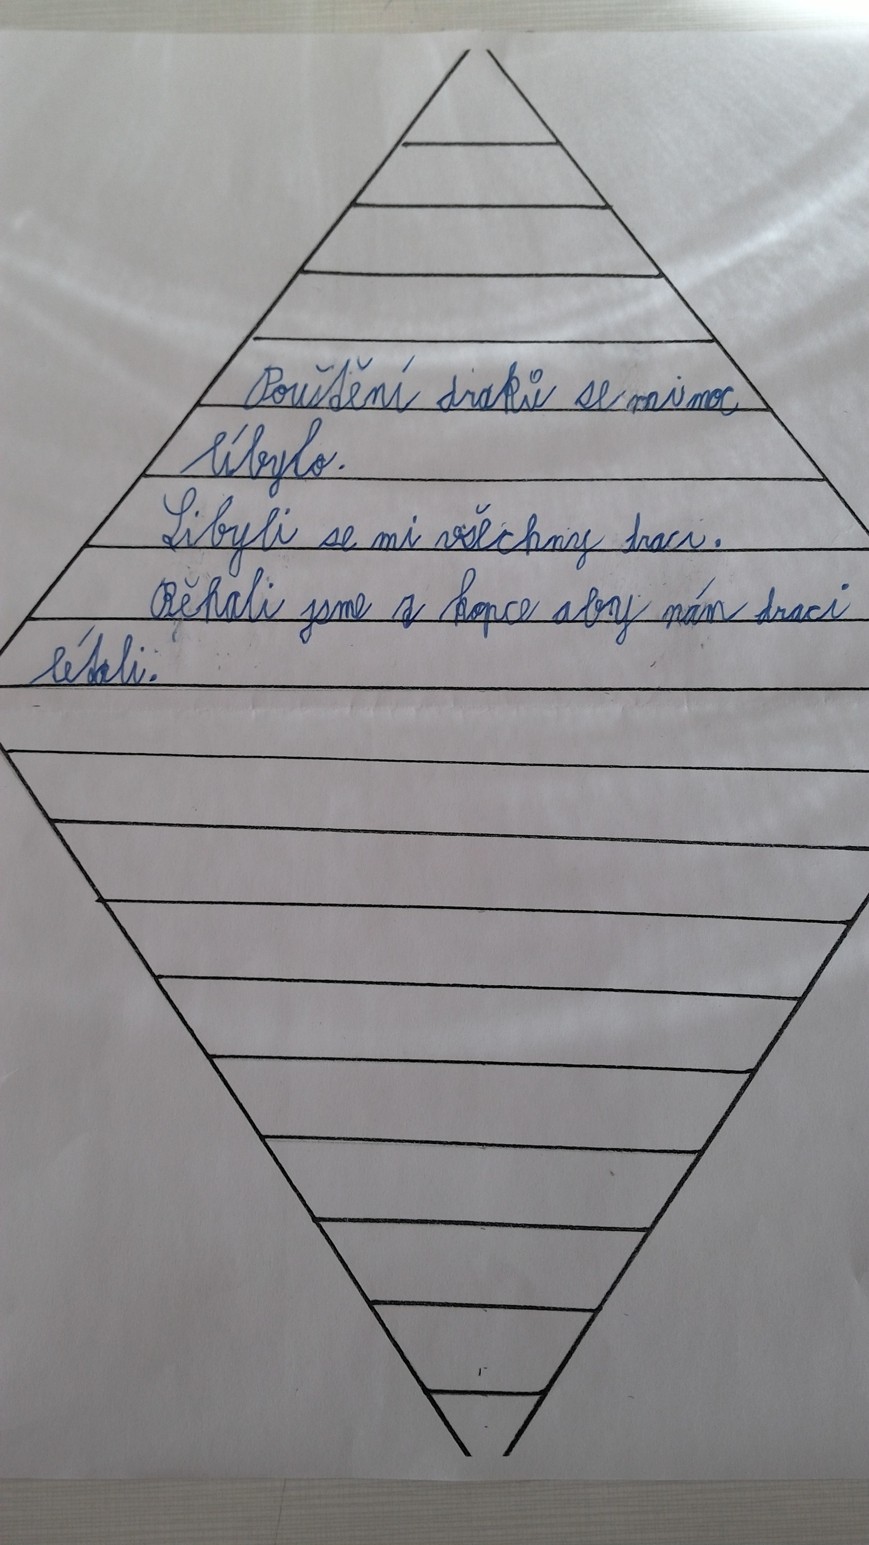 Pouštění draků se mi moc
líbylo.
Libyli se mi všechny draci.
Běhali jsme z kopce aby nám draci
létali.